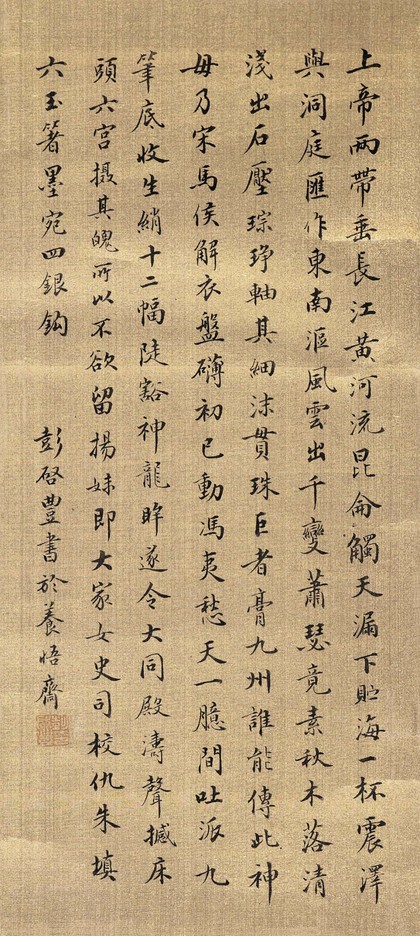 上帝兩帶垂長江黃河流昆侖觸天漏下貯海一杯震澤
與洞庭匯作東南漚風雲出千變蕭瑟竟素秋木落清
淺出石壓琮琤軸其細沫貫珠巨者膏九州誰能傳此神
毋乃宋馬侯解衣盤礴初已動馮夷愁天一臆間吐派九
筆底收生綃十二幅陡豁神龍眸遂令大同殿濤聲撼床
頭六宮摄其魄所以不欲留揚妹即大家女史司校仇朱填
六玉箸墨宛四銀鈎
彭啓豐書於養悟齋